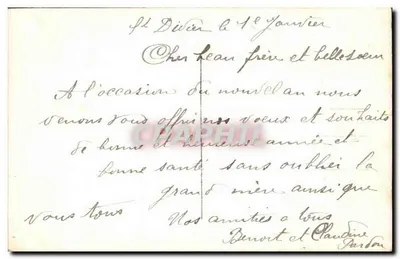 St Didier le 1e Janvier
Cher beau frère et belle soeur
A l'occasion du nouvel an nous
venons vous offrir nos voeux et souhaits
de bonne et heureuse année et
bonne santé sans oublier la
grand mère ainsi que
vous tous Nos amitiés a tous
Benoit et Claudine